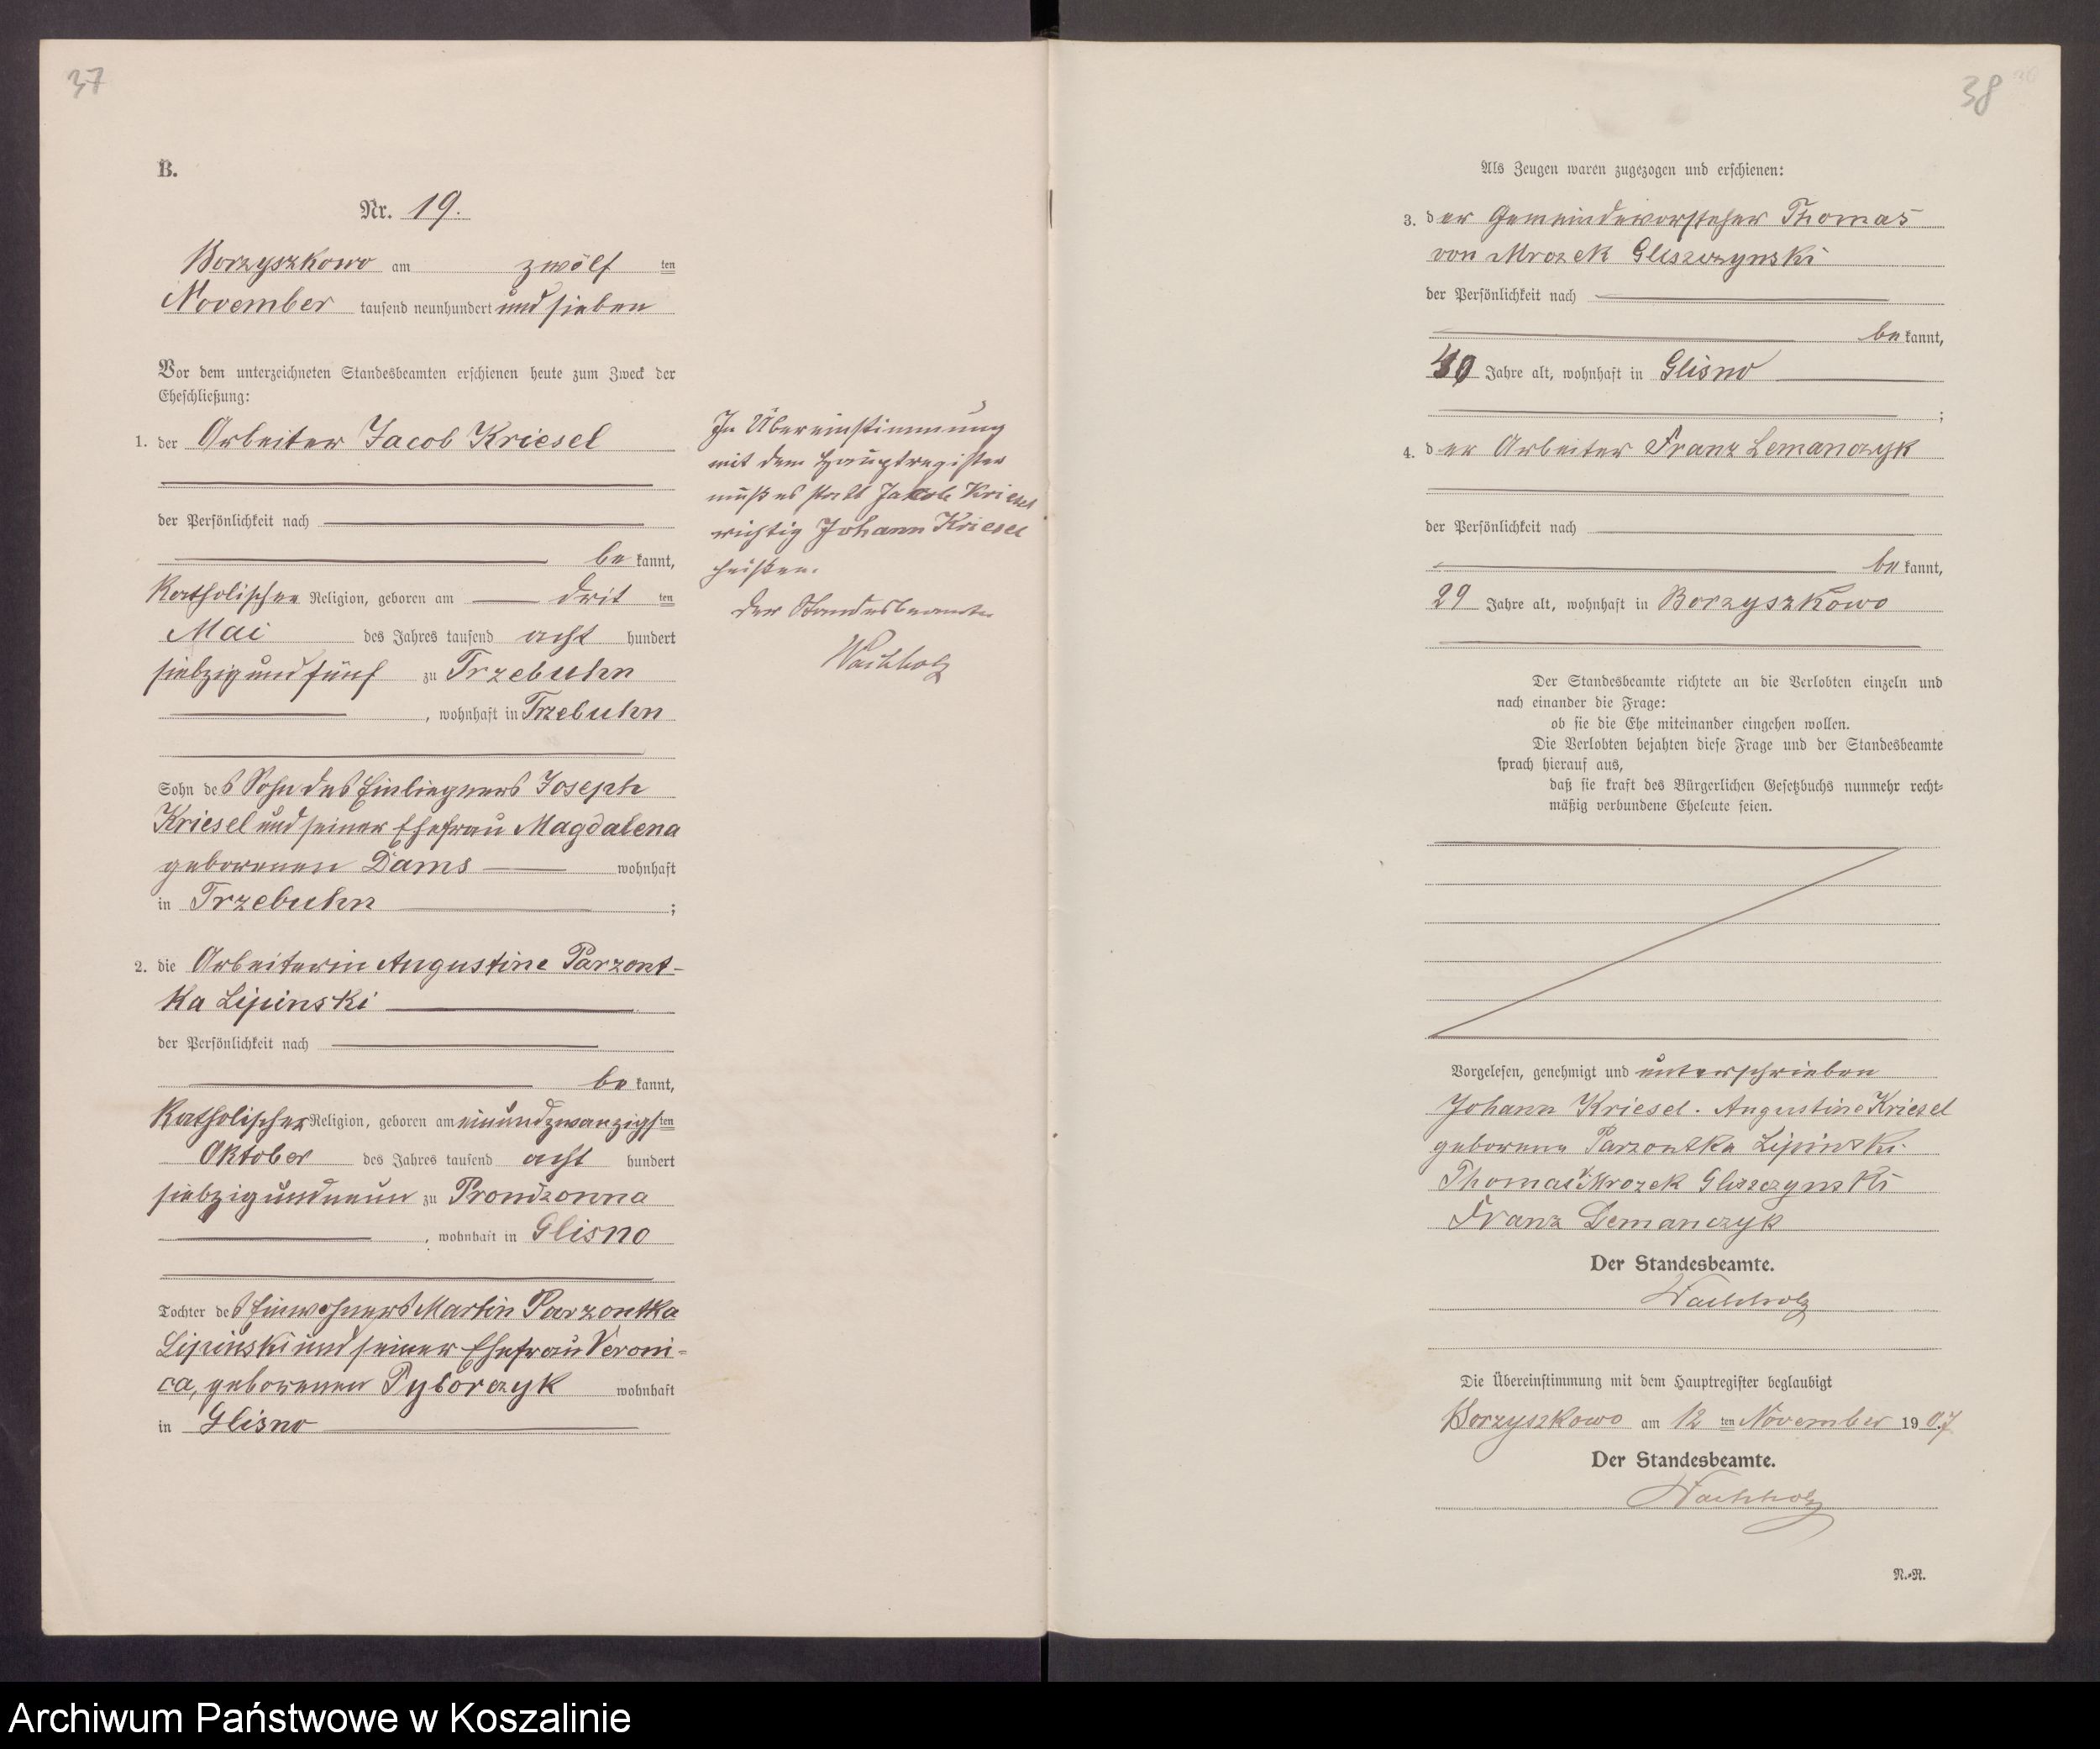 37
B.
Nr. 19.
Borzyszkowo am zwölf ten
November tausend neunhundert und sieben
Vor dem unterzeichneten Standesbeamten erschienen heute zum Zweck der
Eheschließung:
1. der Arbeiter Jacob Kriesel
der Persönlichkeit nach
be kannt,
Katholischer Religion, geboren am drit ten
Mai des Jahres tausend acht hundert
siebzig und fünf zu Trzebuhn
, wohnhaft in Trzebuhn
Sohn des Sohn des Einliegers Joseph
Kriesel und seiner Ehefrau Magdalena
geborenen Dams wohnhaft
in Trzebuhn ;
2. die Arbeiterin Augustine Parzont-
ka Lipinski
der Persönlichkeit nach
be kannt,
Katholischer Religion, geboren am einundzwanzigsten
Oktober des Jahres tausend acht hundert
siebzig und neun zu Prondzonna
, wohnhaft in Glisno
Tochter des Einwohners Martin Parzontka
Lipinski und seiner Ehefrau Veroni=
ca, geborenen Pyborczyk wohnhaft
in Glisno
In Übereinstimmung
mit dem Hauptregister
muß es statt Jakob Kriesel
richtig Johann Kriesel
heißen.
Der Standesbeamte
Wachholz
38
Als Zeugen waren zugezogen und erschienen:
3. der Gemeindevorsteher Thomas
von Mrozek Gliszczynski
der Persönlichkeit nach
be kannt,
40 Jahre alt, wohnhaft in Glisno
;
4. der Arbeiter Franz Lemanczyk
der Persönlichkeit nach
be kannt,
29 Jahre alt, wohnhaft in Borzyszkowo
Der Standesbeamte richtete an die Verlobten einzeln und
nach einander die Frage:
ob sie die Ehe miteinander eingehen wollen.
Die Verlobten bejahten diese Frage und der Standesbeamte
sprach hierauf aus,
daß sie kraft des Bürgerlichen Gesetzbuchs nunmehr recht=
mäßig verbundene Eheleute seien.
Vorgelesen, genehmigt und unterschrieben
Johann Kriesel. Augustine Kriesel
geborene Parzontka Lipinski.
Thomas v. Mrozek Gliszczynski
Franz Lemanczyk
Der Standesbeamte.
Wachholz
Die Übereinstimmung mit dem Hauptregister beglaubigt
Borzyszkowo am 12 ten November 1907
Der Standesbeamte.
Wachholz
N.=R.
Archiwum Państwowe w Koszalinie